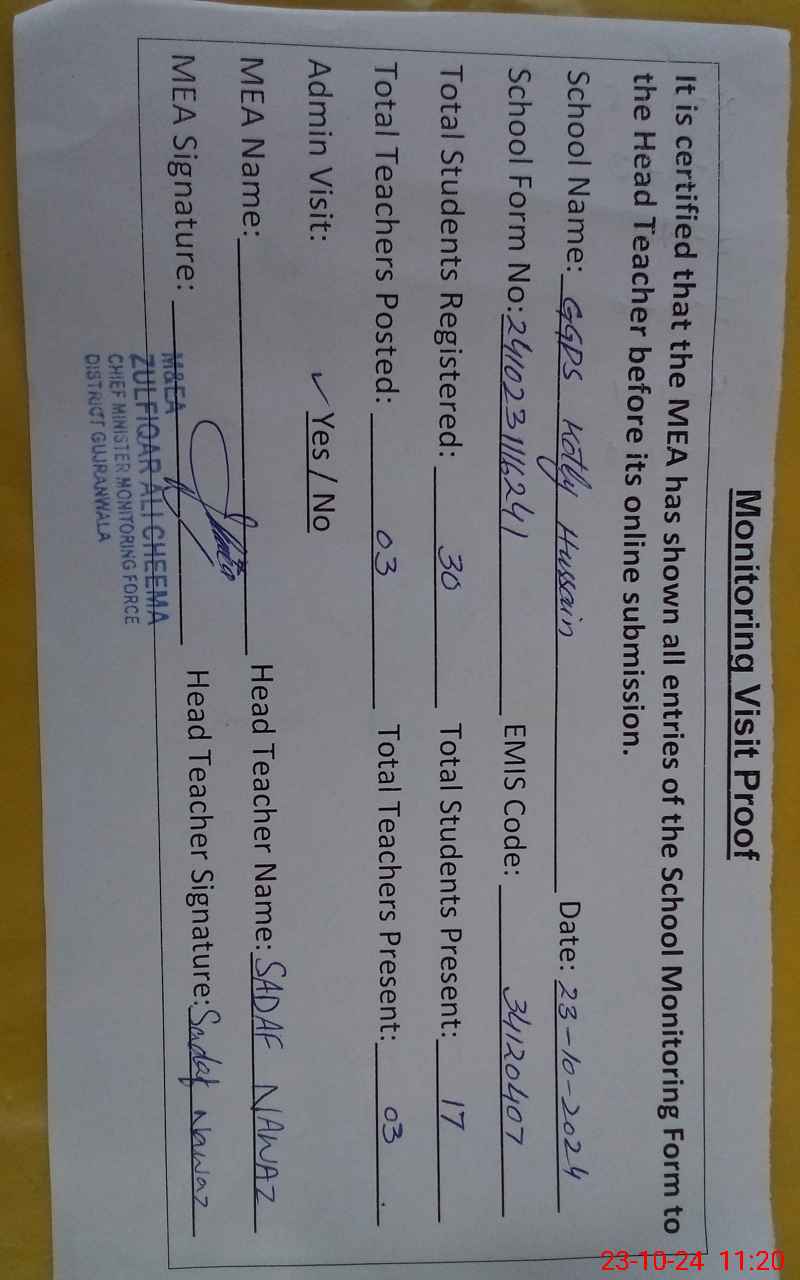 Monitoring Visit Proof
It is certified that the MEA has shown all entries of the School Monitoring Form to
the Head Teacher before its online submission.
School Name: GGPS Kotly Hussain Date: 23-10-2024
School Form No: 241023116241 EMIS Code: 34120407
Total Students Registered: 30 Total Students Present: 17
Total Teachers Posted: 03 Total Teachers Present: 03
Admin Visit: ✓ Yes / No
MEA Name: Head Teacher Name: SADAF NAWAZ
MEA Signature: Head Teacher Signature: Sadaf Nawaz
M&EA
ZULFIQAR ALI CHEEMA
CHIEF MINISTER MONITORING FORCE
DISTRICT GUJRANWALA
23-10-24 11:20